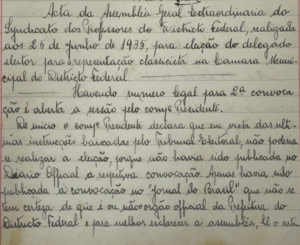 Acta da Assembléa Geral Extraordinaria do
Syndicato dos Professores do Districto Federal, realizada
aos 26 de Junho de 1935, para eleição do delegado
eleitor para representação classista na Camara Muni-
cipal do Districto Federal.
Havendo numero legal para 2ª convoca-
ção é aberta a sessão pelo compº Presidente.
De inicio o compº Presidente declara que em vista das ul-
timas instrucções baixadas pelo Tribunal Eleitoral, não poderia
se realizar a eleição, porque não havia sido publicada no
Diario Official a respectiva convocação. Apenas havia sido
publicada a convocação no "Jornal do Brasil" que não se
tem certeza de que é ou não orgão official da Prefeitura do
Districto Federal e para melhor esclarecer a assembléa, lê o